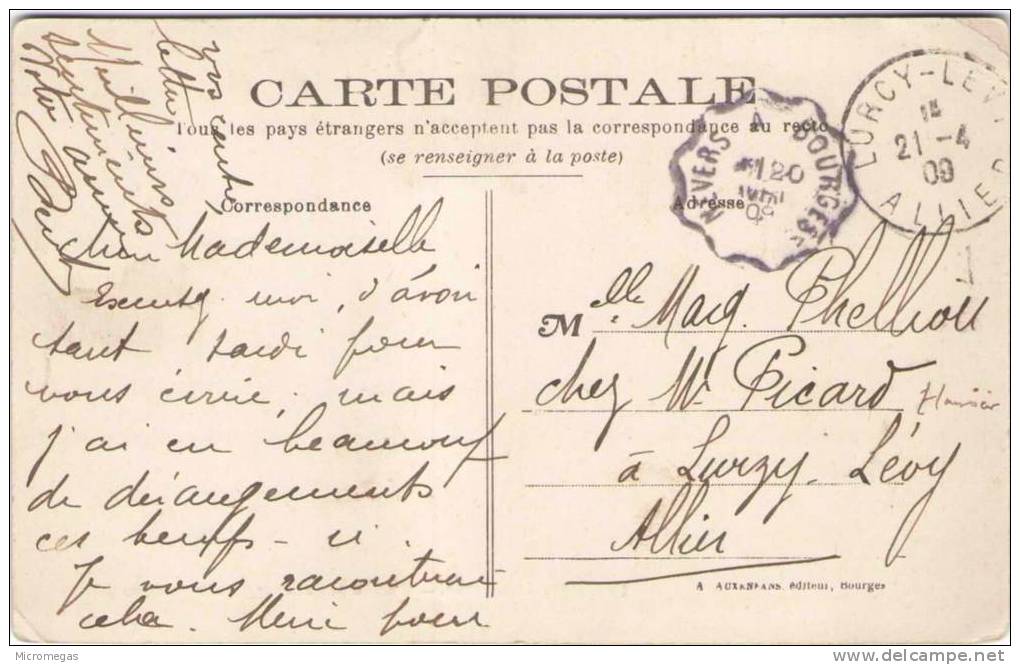 CARTE POSTALE
Tous les pays étrangers n'acceptent pas la correspondance au recto
(se renseigner à la poste)
Correspondance
Adresse
NEVERS A BOURGES
20
AVRIL
09
LURCY-LEVY
21 -4
09
ALLIER
Mademoiselle
Excusez moi, d'avoir
tant tardé pour
vous écrire, mais
j'ai eu beaucoup
de dérangements
ces temps-ci.
Je vous raconterai
cela. Merci pour
votre
lettre
Meilleurs
sentiments
Votre
M elle Marg. Thelliou
chez Mr Picard
à Lurzy. Lévy
Allier
A AUXENFANS, éditeur, Bourges
Micromegas
www.delcampe.net